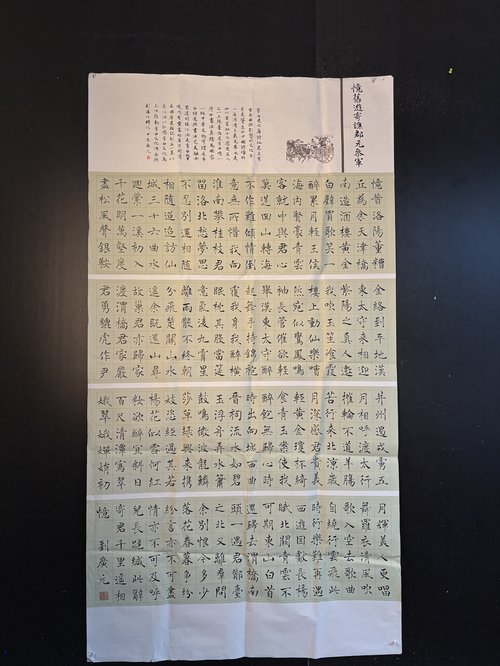 憶舊遊寄譙郡元參軍
憶昔洛陽董糟
丘為余天津橋
南造酒樓黃金
白璧買歌笑一
醉累月輕王侯
海內賢豪青雲
客就中與君心
莫逆迴山轉海
不作難傾情倒
意無所惜我向
淮南攀桂枝君
留洛北愁夢思
不忍別還相隨
相隨迢迢訪仙
城三十六曲水
迴縈一溪初入
千花明萬壑度
盡松風聲銀鞍
金絡到平地漢
東太守來相迎
紫陽之真人邀
我吹玉笙飡霞
樓上動仙樂嘈
然宛似鸞鳳鳴
袖長管催欲輕
舉漢東太守醉
起舞手持錦袍
覆我身我醉橫
眠枕其股當筵
意氣凌九霄星
離雨散不終朝
分飛楚關山水
遙余既還山尋
故巢君亦歸家
渡渭橋君家嚴
君勇貔虎作尹
并州遏戎虜五
月相呼渡太行
摧輪不道羊腸
苦行來北涼歲
月深感君貴義
輕黃金瓊杯綺
食青玉案使我
醉飽無歸心時
時出向城西曲
晉祠流水如碧
玉浮舟弄水簫
鼓鳴微波龍鱗
莎草綠興來攜
妓恣經過其若
楊花似雪何紅
妝欲醉宜斜日
百尺清潭寫翠
娥翠娥嬋娟初
月輝美人更唱
舞羅衣清風吹
歌入空去歌曲
自繞行雲飛此
時行樂難再遇
西遊因獻長楊
賦北闕青雲不
可期東山白首
還歸去渭橋南
頭一遇君酇臺
之北又離群問
余別恨今多少
落花春暮爭紛
紛言亦不可盡
情亦不可及呼
兒長跪緘此辭
寄君千里遙相
憶 劉廣元